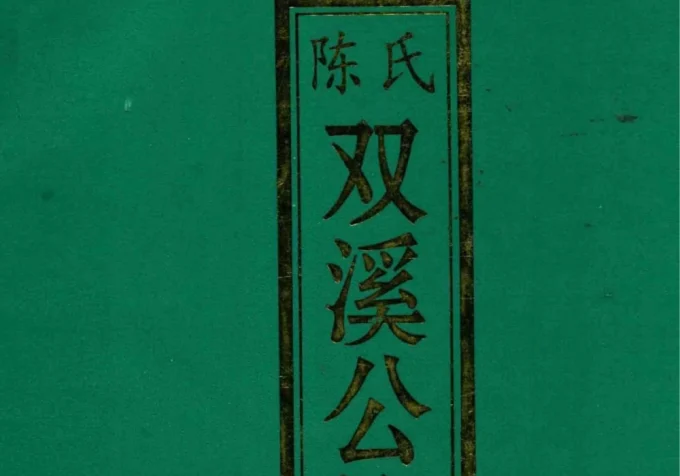 陈氏
双溪公